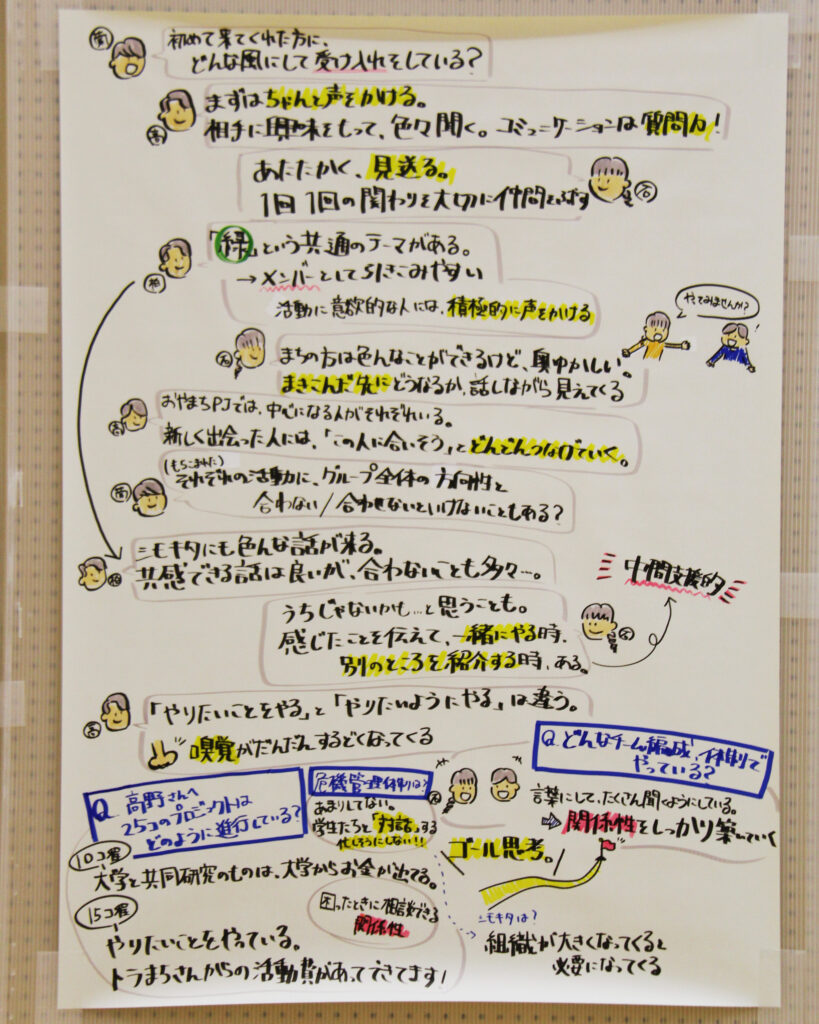 初めて来てくれた方に、
どんな風にして受け入れをしている？
まずはちゃんと声をかける。
相手に興味をもって、色々聞く。コミュニケーションは質問力！
あたたかく、見送る。
1回1回の関わりを大切に仲間をふやす
「緑」という共通のテーマがある。
→メンバーとして引きこみやすい
活動に意欲的な人には、積極的に声をかける
やってみませんか？
まちの方は色んなことができるけど、奥ゆかしい。
まきこんだ先にどうなるか、話しながら見えてくる
おやまちPJでは、中心になる人がそれぞれいる。
新しく出会った人には、「この人に合いそう」とどんどんつなげていく。
(もちこまれた)
それぞれの活動に、グループ全体の方向性と
合わない/合わせないといけないこともある？
シモキタにも色んな話が来る。
共感できる話は良いが、合わないことも多々…。
中間支援的
うちじゃないかも…と思うことも。
感じたことを伝えて、一緒にやる時、
別のところを紹介する時、ある。
「やりたいことをやる」と「やりたいようにやる」は違う。
嗅覚がだんだんするどくなってくる
Q どんなチーム編成、体制で
やっている？
言葉にして、たくさん聞くようにしている。
⇒関係性をしっかり築いていく
ゴール思考。
Q 高野さんへ
25コのプロジェクトは
どのように進行している？
危機管理体制は？
あまりしてない。
学生たちと「対話」する
忙しそうにしない!!
10コ程
大学と共同研究のものは、大学からお金が出てる。
困ったときに相談できる
関係性
15コ程
やりたいことをやっている。
トラまちさんからの活動費があってできてます！
シモキタは？
組織が大きくなってくると
必要になってくる